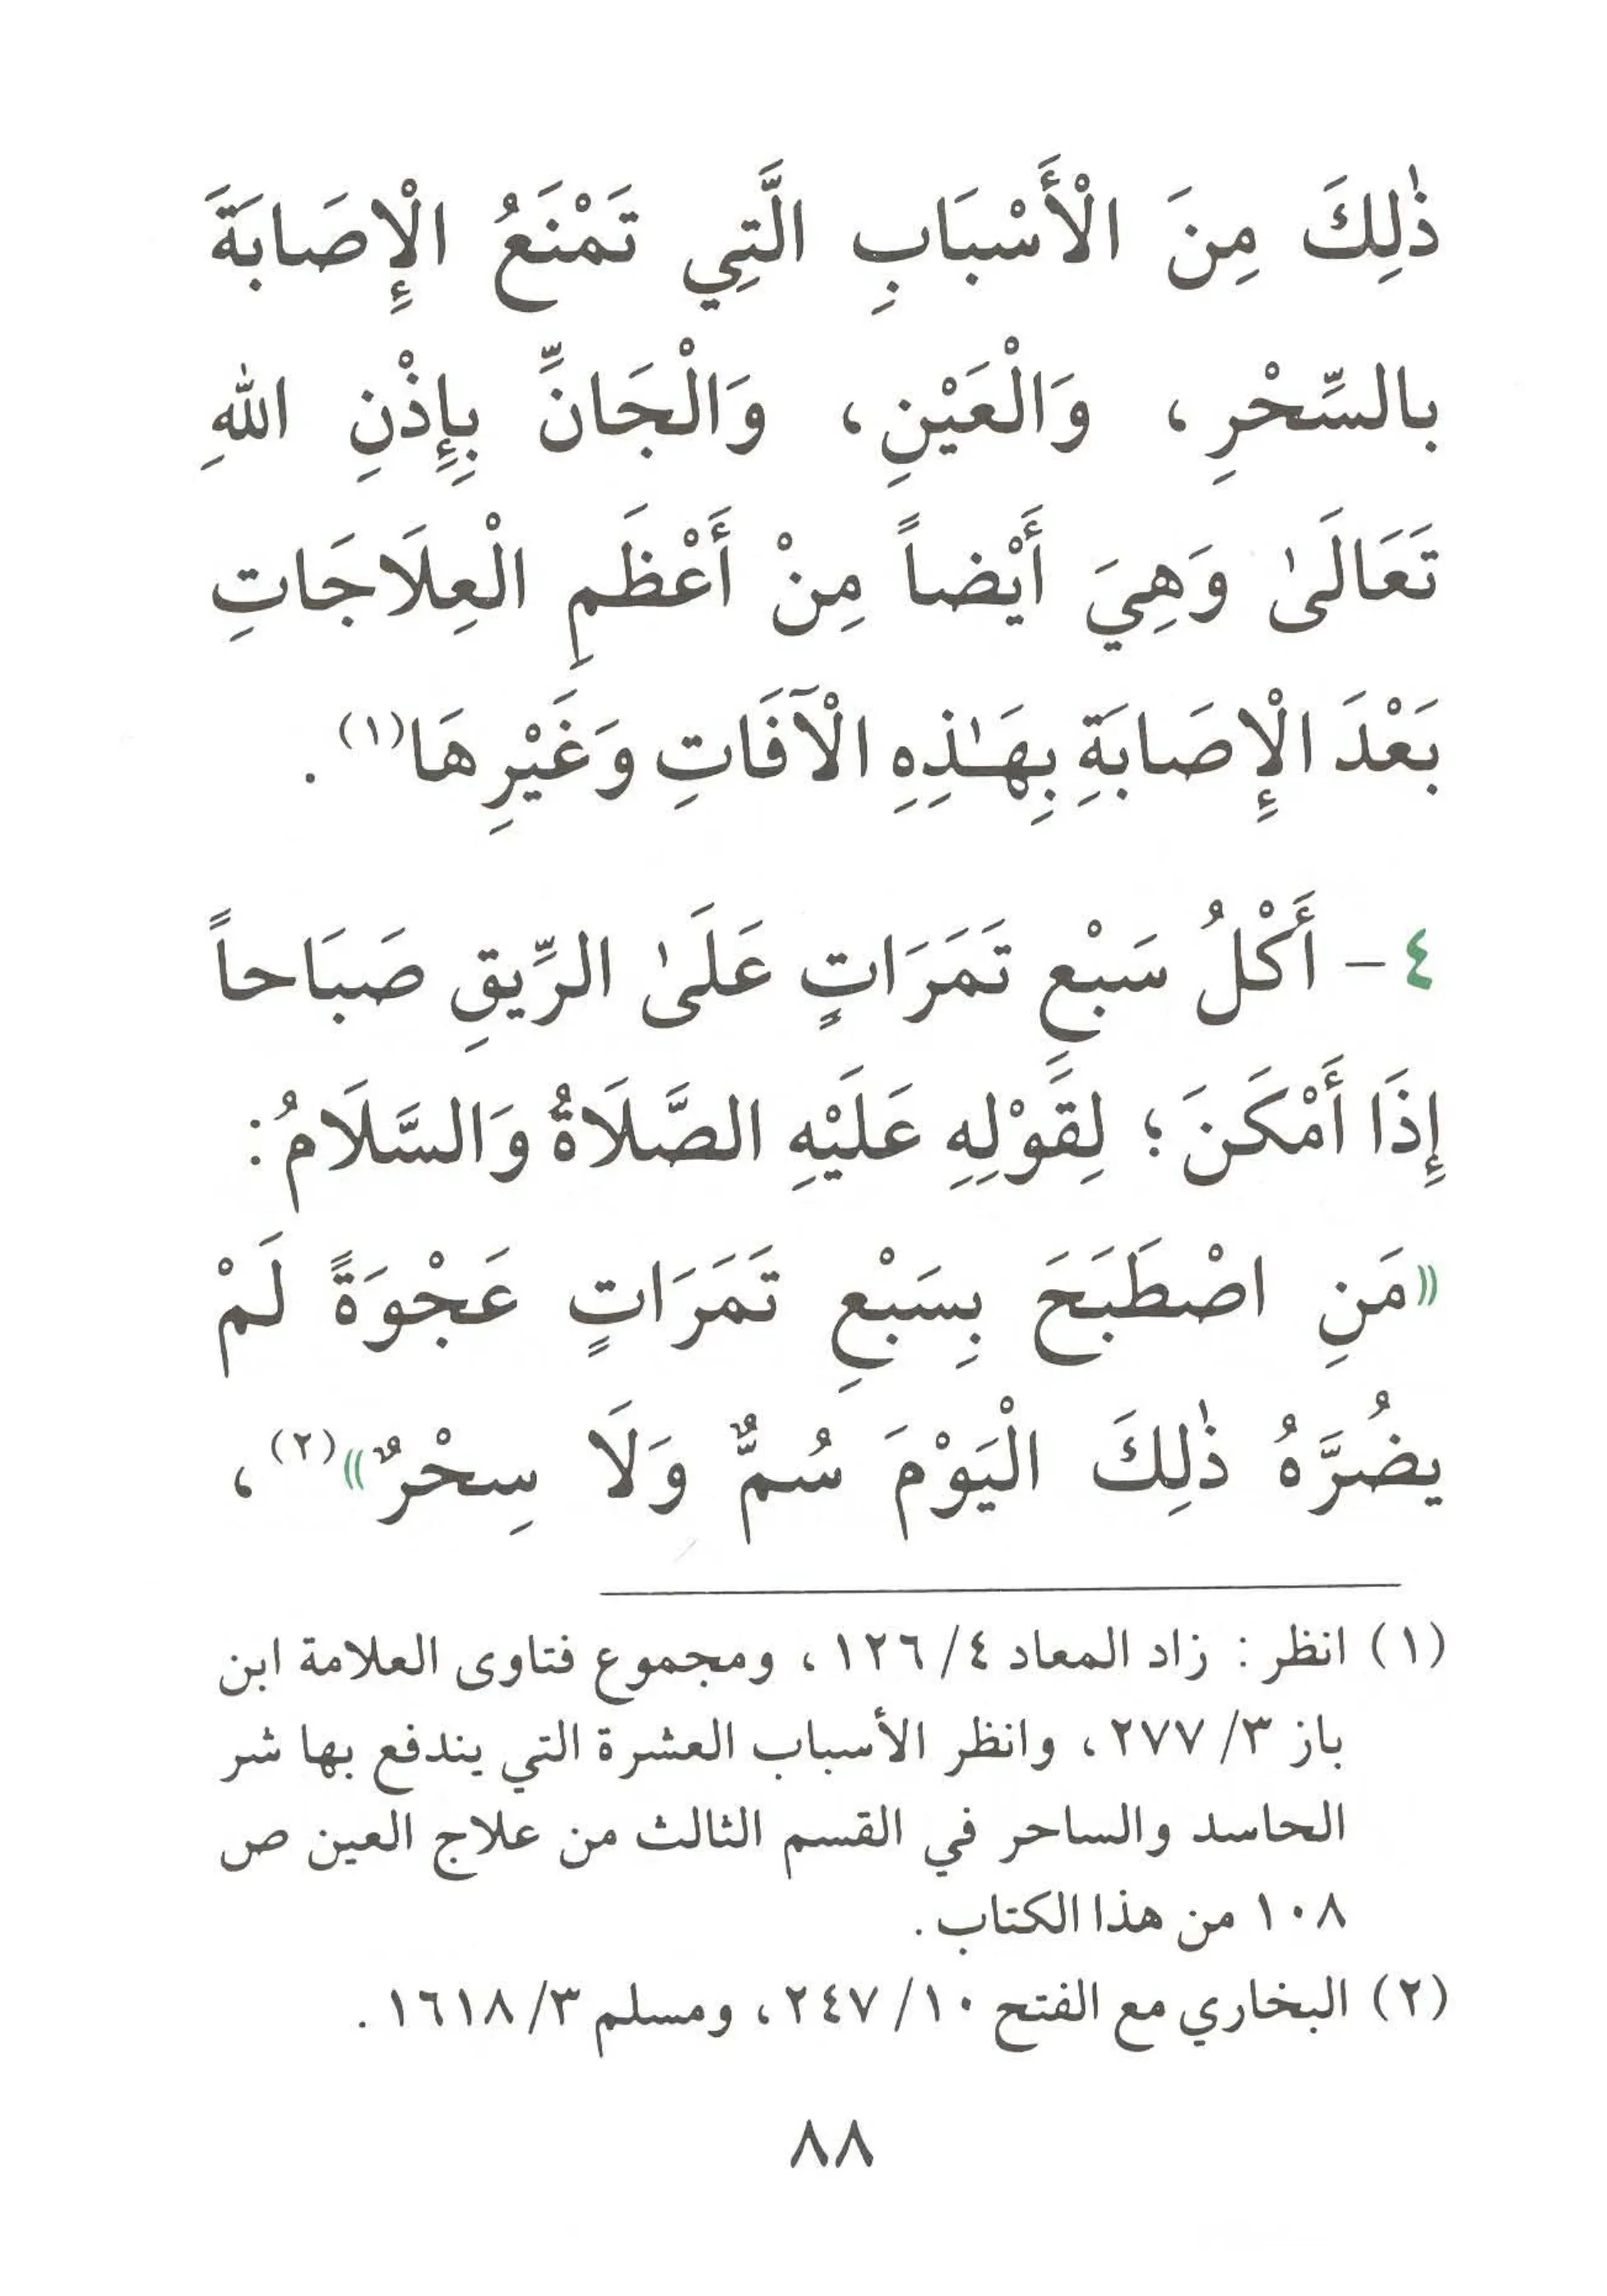 ذٰلِكَ مِنَ الْأَسْبَابِ الَّتِي تَمْنَعُ الْإِصَابَةَ
بالسِّحْرِ، وَالْعَيْنِ، وَالْجَانِّ بِإِذْنِ اللهِ
تَعَالَىٰ وَهِيَ أَيْضاً مِنْ أَعْظَمِ الْعِلَاجَاتِ
بَعْدَ الْإِصَابَةِ بِهَـٰذِهِ الْآفَاتِ وَغَيْرِهَا(١).
٤- أَكْلُ سَبْعِ تَمَرَاتٍ عَلَىٰ الرِّيقِ صَبَاحاً
إِذَا أَمْكَنَ؛ لِقَوْلِهِ عَلَيْهِ الصَّلَاةُ وَالسَّلَامُ:
«مَنِ اصْطَبَحَ بِسَبْعِ تَمَرَاتٍ عَجْوَةً لَمْ
يضُرَّهُ ذٰلِكَ الْيَوْمَ سُمٌّ وَلَا سِحْرٌ»(٢)،
(١) انظر: زاد المعاد ٤/ ١٢٦، ومجموع فتاوى العلامة ابن
باز ٣/ ٢٧٧، وانظر الأسباب العشرة التي يندفع بها شر
الحاسد والساحر في القسم الثالث من علاج العين ص
١٠٨ من هذا الكتاب.
(٢) البخاري مع الفتح ١٠/ ٢٤٧، ومسلم ٣/ ١٦١٨.
٨٨